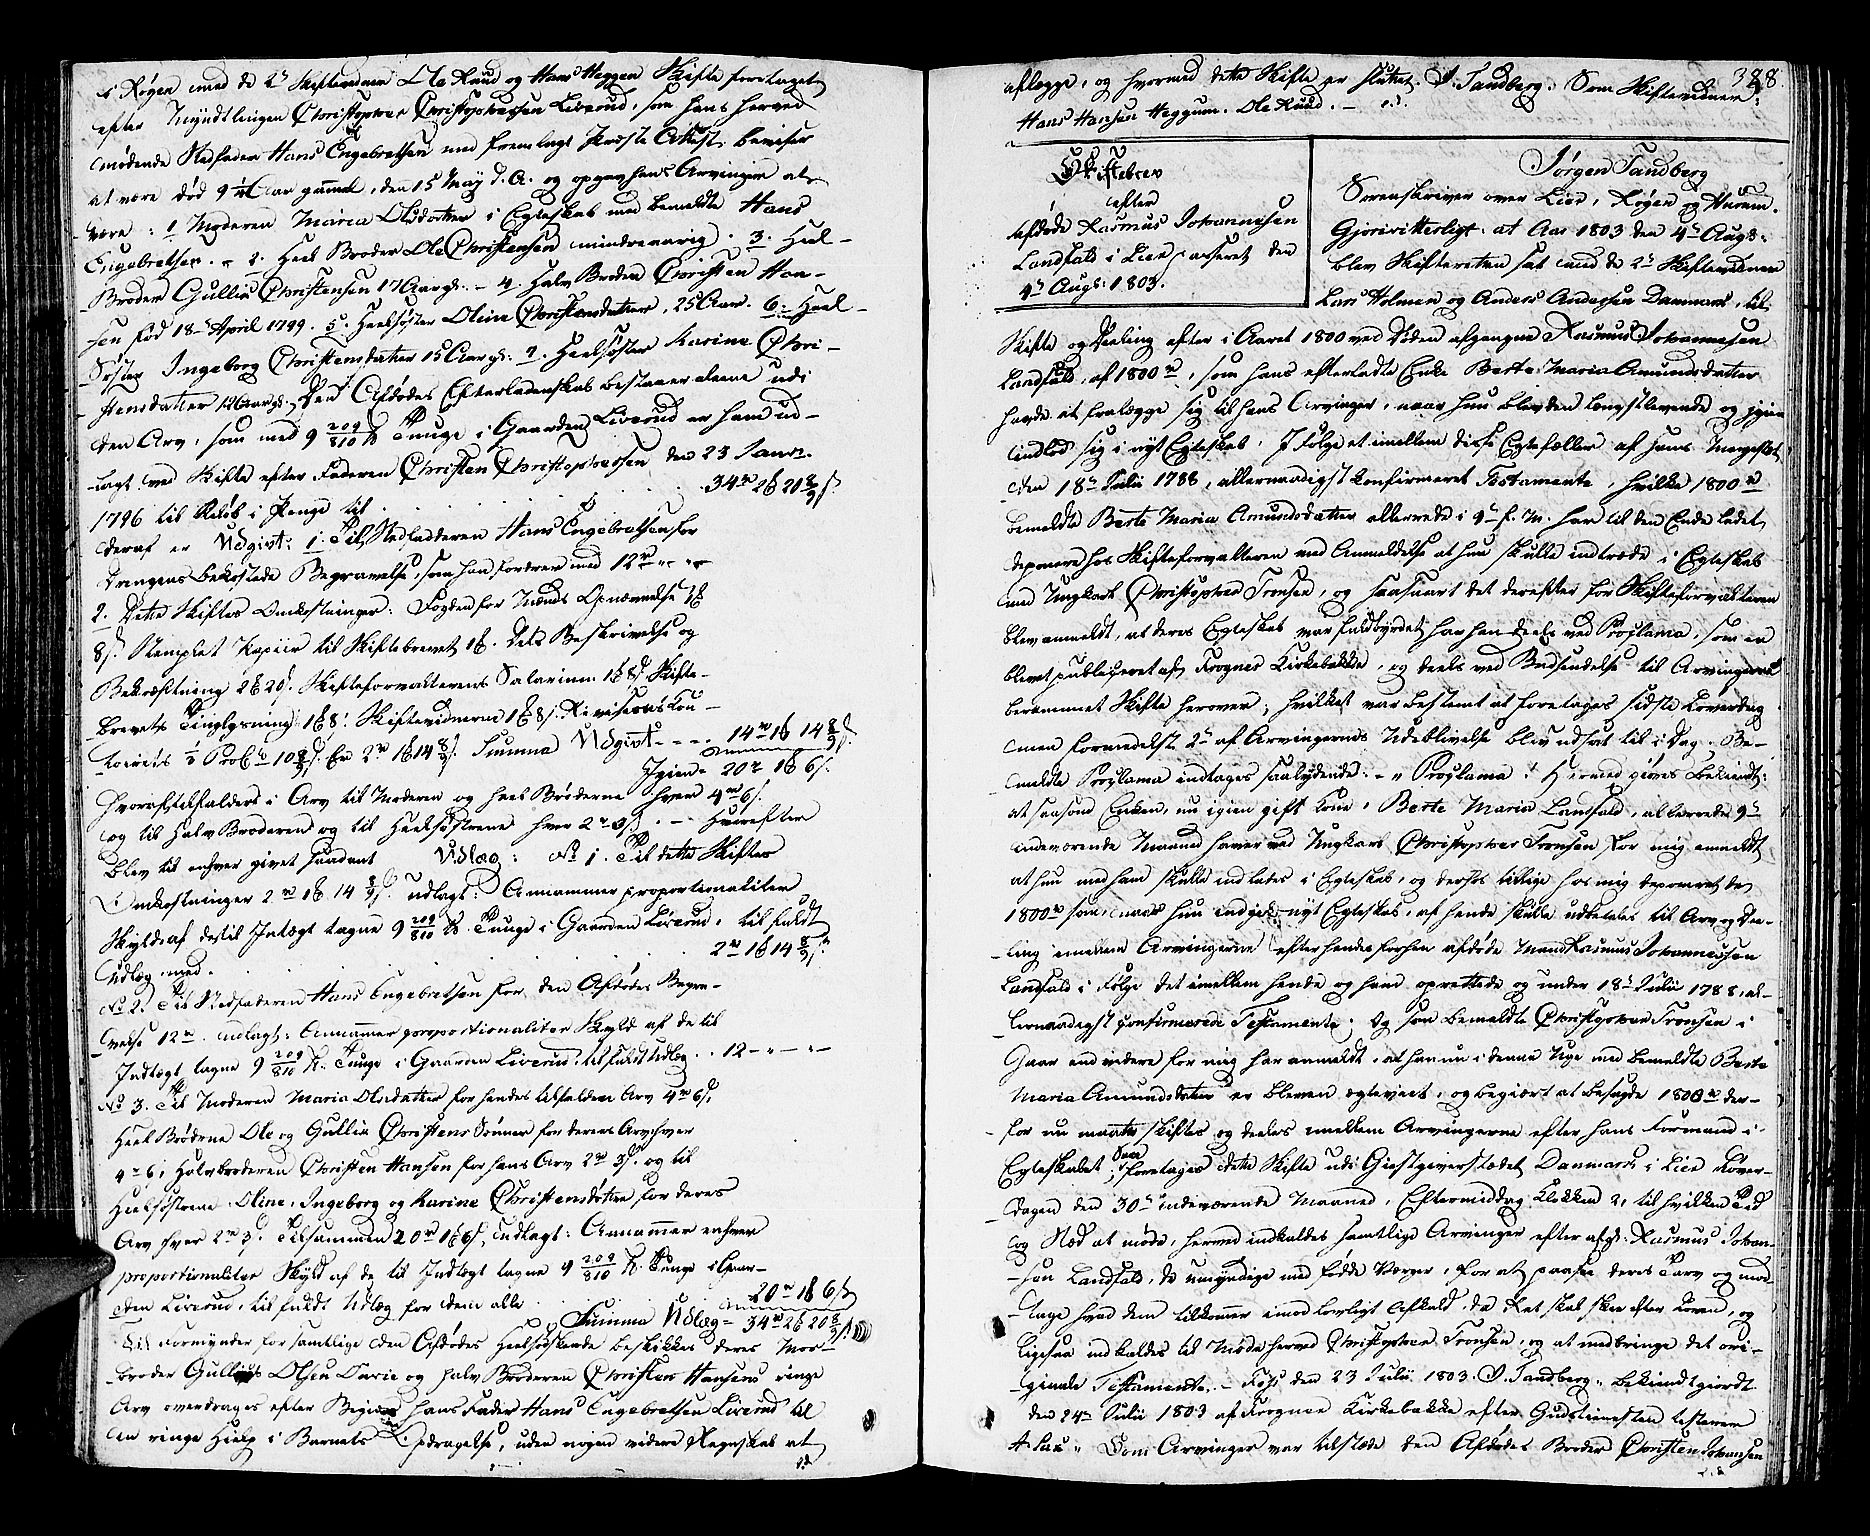 i Røgen med de 2de Skiftevidner Ole Ruud og Hans Heggen Skifte foretaget
efter Myndtlingen Christopher Christophersen Liverud, som hans herved
mødende Stedfader Hans Engebretsen med fremlagt Præste Attest beviser
at være død 9 1/4 Aar gammel, den 15 May d. A. og opgav hans Arvinger at
være: 1 Moderen Maria Olsdatter i Egteskab med bemeldte Hans
Engebretsen. - 2. Heel Broder Ole Christensen mindreaarig. 3. Heel-
Broder Gullik Christensen 17 Aar gl. - 4. Halv Broder Christen Han-
sen fød 18de April 1799. 5. Heelsøster Oline Christensdatter, 25 Aar. 6. Heel-
Søster Ingeborg Christensdatter 15 Aar gl: 7. Heelsøster Karine Chri-
stensdatter 12 Aar gl. Den Afdødes Efterladenskab bestaaer alene udi
den Arv, som med 9 209/810 Tunge i Gaarden Liverud er ham ud-
lagt ved Skifte efter Faderen Christen Christophersen den 23 Janr.
1796 til Beløb i Penge til . . . 34 rd 2 20 8/9 s.
Deraf er Udgivt: 1. Til Stedfaderen Hans Engebretsen for
Drengens bekostede Begravelse, som han fordrer med 12 rd
2. Dette Skiftes Omkostninger: Fogden for Mænds Opnævnelse 1
8 s. Stemplet Papiir til Skiftebrevet 1. Dets Beskrivelse og
Bekræftning 2 20 s. Skifteforvalterens Salarium 1 8 s. Skifte-
Brevets Tinglysning 1 8. Skiftevidnerne 1 8 s. Revisions Con-
toirets 1/2 Proct 10 8/9 s. Er 2 rd 1 14 8/9 s. Summa Udgivt - - - 14 rd 1 14 8/9 s.
Igien - 20 rd 1 6 s.
Hvoraf tilfalder i Arv til Moderen og heel Brøderne hver 4 rd 6 s.
og til Halv Broderen og til Heelsøstrene hver 2 rd 3 s. - Hvorefter
blev til enhver givet saadant Udlæg: No 1. Til dette Skiftes
Omkostninger 2 rd 1 14 8/9 s. udlagt: Annammer proportionaliter
Skyld af de til Indtægt tagne 9 209/810 Tunge i Gaarden Liverud, til fuldt
Udlæg med . . . 2 rd 1 14 8/9 s.
No 2. Til Stedfaderen Hans Engebretsen for den Afdødes Begra-
velse 12 rd. udlagt: Annammer proportionaliter Skyld af de til
Indtægt tagne 9 209/810 Tunge i Gaarden Liverud, til fuldt Udlæg . . 12 - " - " -
No 3. Til Moderen Maria Olsdatter for hendes tilfaldne Arv 4 rd 6 s,
Heel Brødrne Ole og Gullik Christens Sønner for deres Arv hver
4 rd 6, Halvbroderen Christen Hansen for hans Arv 2 rd 3 s. og til
Heelsøstrene Oline, Ingeborg og Karine Christensdøttre for deres
Arv hver 2 rd 3 s. Tilsammen 20 rd 1 6 s, udlagt: Annammer enhver
proportionaliter Skyld af de til Indtægt tagne 9 209/810 Tunge i Gaar-
den Liverud, til fuldt Udlæg for dem alle . . . 20 rd 1 6 s
Summa Udlæg - 34 rd 2 20 8/9 s.
Til Formynder for samtlige den Afdødes Heelsødskende beskikkes deres Mor-
broder Gulliks Olsen og halv Broderen Christen Hansens ringe
Arv overdrages efter hans Fader Hans Engebretsen Liverud til
en ringe Hielp i Barnets Opdragelse, uden nogen videre Regnskab at
388.
aflegge, og hvormed dette Skifte er sluttet. J. Tandberg. Som Skiftevidner:
Hans Hansen Heggum. Ole Ruud. -
Skiftebrev
efter
afdøde Rasmus Johannesen
Landfald i Lier passeret den
4de Augs: 1803.
Jørgen Tandberg
Sorenskriver over Lier, Røgen og Hurum.
Gjør vitterligt: at Aar 1803 den 4de Augs:
blev Skifteretten sat med de 2de Skiftevidner
Lars Holmen og Anders Andersen Danmark, til
Skifte og Deeling efter i Aaret 1800 ved Døden afgangne Rasmus Johannesen
Landfald, af 1800 rd, som hans efterladte Enke Berte Maria Amundsdatter
havde at fralægge sig til hans Arvinger, naar hun blev den længstlevende og igien
indlod sig i nyt Egteskab. I Følge et imellem disse Egtefæller af hans Mayestet
den 18de Julii 1788, allernaadigst konfirmeret Testamente, hvilke 1800 rd
bemeldte Berte Maria Amundsdatter allerrede i 9de f. M. har til den Ende ladet
deponere hos Skifteforvalteren med Anmeldelse at hun skulle indtræde i Egteskab
med Ungkarl Christopher Tronsen, og saasnart det derefter for Skifteforvalteren
blev anmeldt, at deres Egteskab var fuldbyrdet har han deels ved Proclama, som er
blevet publiceret af Frogner Kirkebakke, og deels ved Budsendelse til Arvingerne
berammet Skifte herover, hvilket var bestemt at foretages sidste Løverdag
men formedelst 2de af Arvingernes Udeblivelse blev udsat til i Dag. Be-
meldte Proclama indtages saalydende: - " Proclama: Hermed gives Bekiendt:
at saasom Enken, nu igien gift Kone, Berte Maria Landfald, allerrede 9de
indeværende Maaned haver ved Ungkarl Christopher Tronsen for mig anmeldt
at hun med ham skulle indlades i Egteskab, og derhos tillige hos mig deponeret de
1800 rd som, naar hun indgik nyt Egteskab, af hende skulle udbetales til Arv og Dee-
ling imellem Arvingerne efter hendes forhen afdøde Mand Rasmus Johannesen
Landfald i Følge det imellem hende og ham oprettede og under 18de Julii 1788, al-
lernaadigst confirmerede Testamente; Og som bemeldte Christopher Tronsen i
Gaar end videre for mig har anmeldt, at han nu i denne Uge med bemeldte Berte
Maria Amundsdatter er bleven egteviet, og begiært at besagde 1800 rd der-
for nu maatte skiftes og deeles imellem Arvingerne efter hans Formand i
Egteskabet; saa foretages dette Skifte udi Giestgiverstædet Danmark i Lier Løver-
dagen den 30te indeværende Maaned, Eftermiddag Klokken 2, til hvilken Tid
og Stæd at møde, herved indkaldes samtlige Arvinger efter afgl: Rasmus Johan-
sen Landfald, de umyndige med fødde Værger, for at paasee deres Tarv og mod-
tage hvad dem tilkommer imod lovligt Afkald, da Ret skal skee efter Loven, og
ligesaa indkaldes til Møde herved Christopher Tronsen, og at medbringe det ori-
ginale Testamente. - Foss den 23 Julii 1803. J. Tandberg. Bekiendtgiordt
den 24de Julii 1803 af Frogner Kirkebakke efter Gudstienesten testerer
" Som Arvinger var tilstæde den Afdødes Broder Christen Johansen